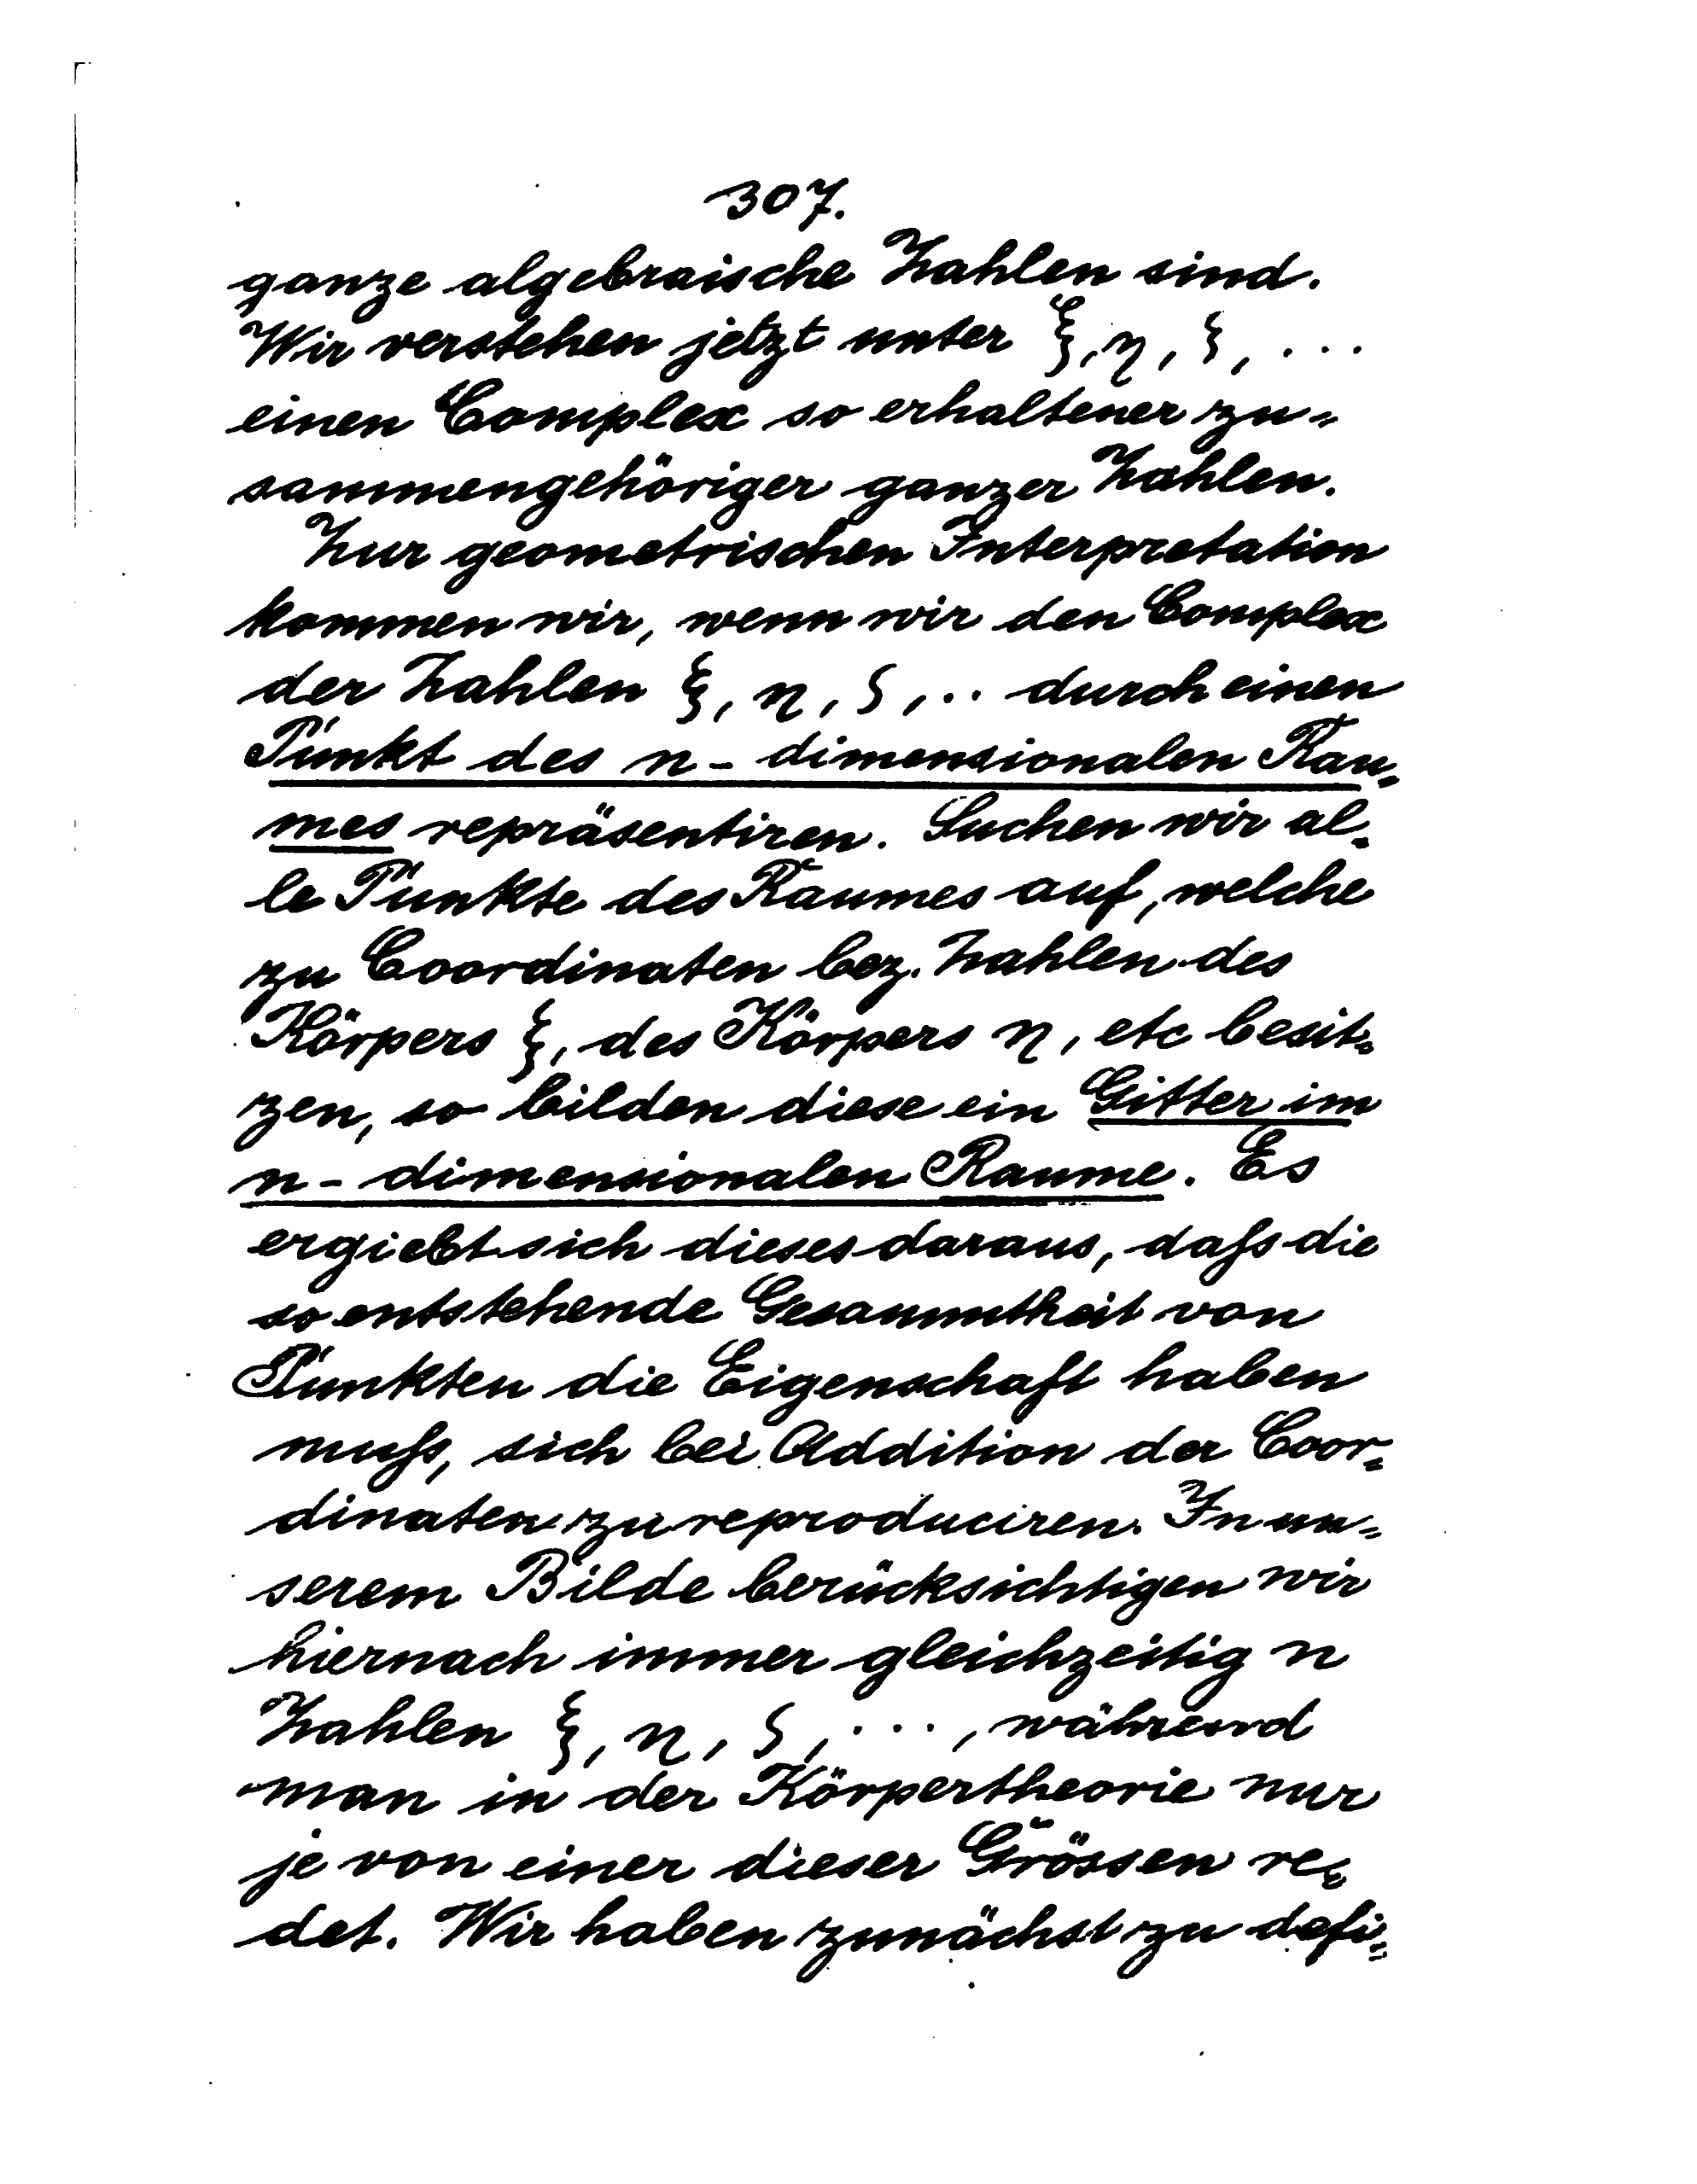 307.
ganze algebraische Zahlen sind.
Wir verstehen jetzt unter ξ, η, ζ, ...
einen Complex so erhaltener zu=
sammengehöriger ganzer Zahlen.
Zur geometrischen Interpretation
kommen wir, wenn wir den Complex
der Zahlen ξ, η, ζ, .. durch einen
Punkt des n-dimensionalen Rau=
mes repräsentiren. Suchen wir al=
le Punkte des Raumes auf, welche
zu Coordinaten bez. Zahlen des
Körpers ξ, des Körpers η, etc besit=
zen, so bilden diese ein Gitter im
n-dimensionalen Raume. Es
ergiebt sich dieses daraus, daſs die
so entstehende Gesammtheit von
Punkten die Eigenschaft haben
muſs, sich bei Addition der Coor=
dinaten zu reproduciren. In un=
serem Bilde berücksichtigen wir
hiernach immer gleichzeitig n
Zahlen ξ, η, ζ, ..., während
man in der Körpertheorie nur
je von einer dieser Grössen re=
det. Wir haben zunächst zu defi=